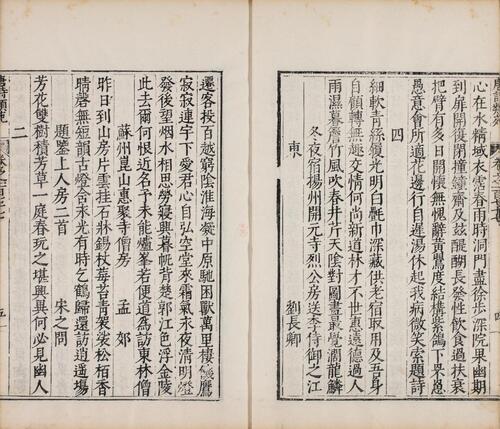 心在水精域衣霑春雨時洞門盡徐步深院果幽期
到扉開復閉撞鐘齋及兹醍醐長發性飲食過扶衰
把臂有多日開懷無愧辭黃鸝度結構紫鴿下罘罳
愚意會所適花邊行自遲湯休起我病微笑索題詩
四
細軟青絲履光明白氎巾深藏供老宿取用及吾身
自顧轉無趣交情何尚新道林才不世惠遠德過人
雨瀉暮簷竹風吹春井芹天陰對圖畫最覺潤龍鱗
冬夜宿揚州開元寺烈公房送李侍御之江
東 劉長卿
遷客投百越窮陰淮海凝中原馳困獸萬里棲饑鷹
寂寂連宇下愛君心自弘空堂來霜氣永夜清明燈
發後望烟水相思勞寢興暮帆背楚郭江色浮金陵
此去爾何恨近名予未能爐峯若便道為訪東林僧
蘇州崑山惠聚寺僧房 孟郊
昨日到山房片雲挂石牀錫杖莓苔青袈裟松栢香
晴磬無短韻古燈含永光有時乞鶴歸還訪逍遥場
題鑒上人房二首 宋之問
二
芳花雙樹積芳草一庭春玩之堪興異何必見幽人